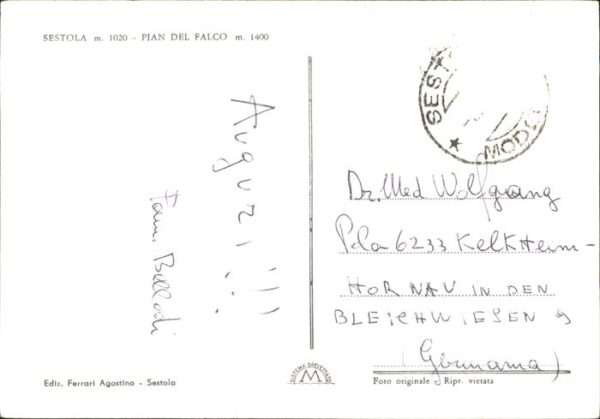 SESTOLA m. 1020 - PIAN DEL FALCO m. 1400
Auguri!!!
Fam. Balladi
SEST
MODE
Dr. Med Wolfgang
6233 Kelkheim-
HORNAU IN DEN
BLEICHWIESEN 9
(Germania)
Ediz. Ferrari Agostino - Sestola
M
Foto originale Ripr. vietata